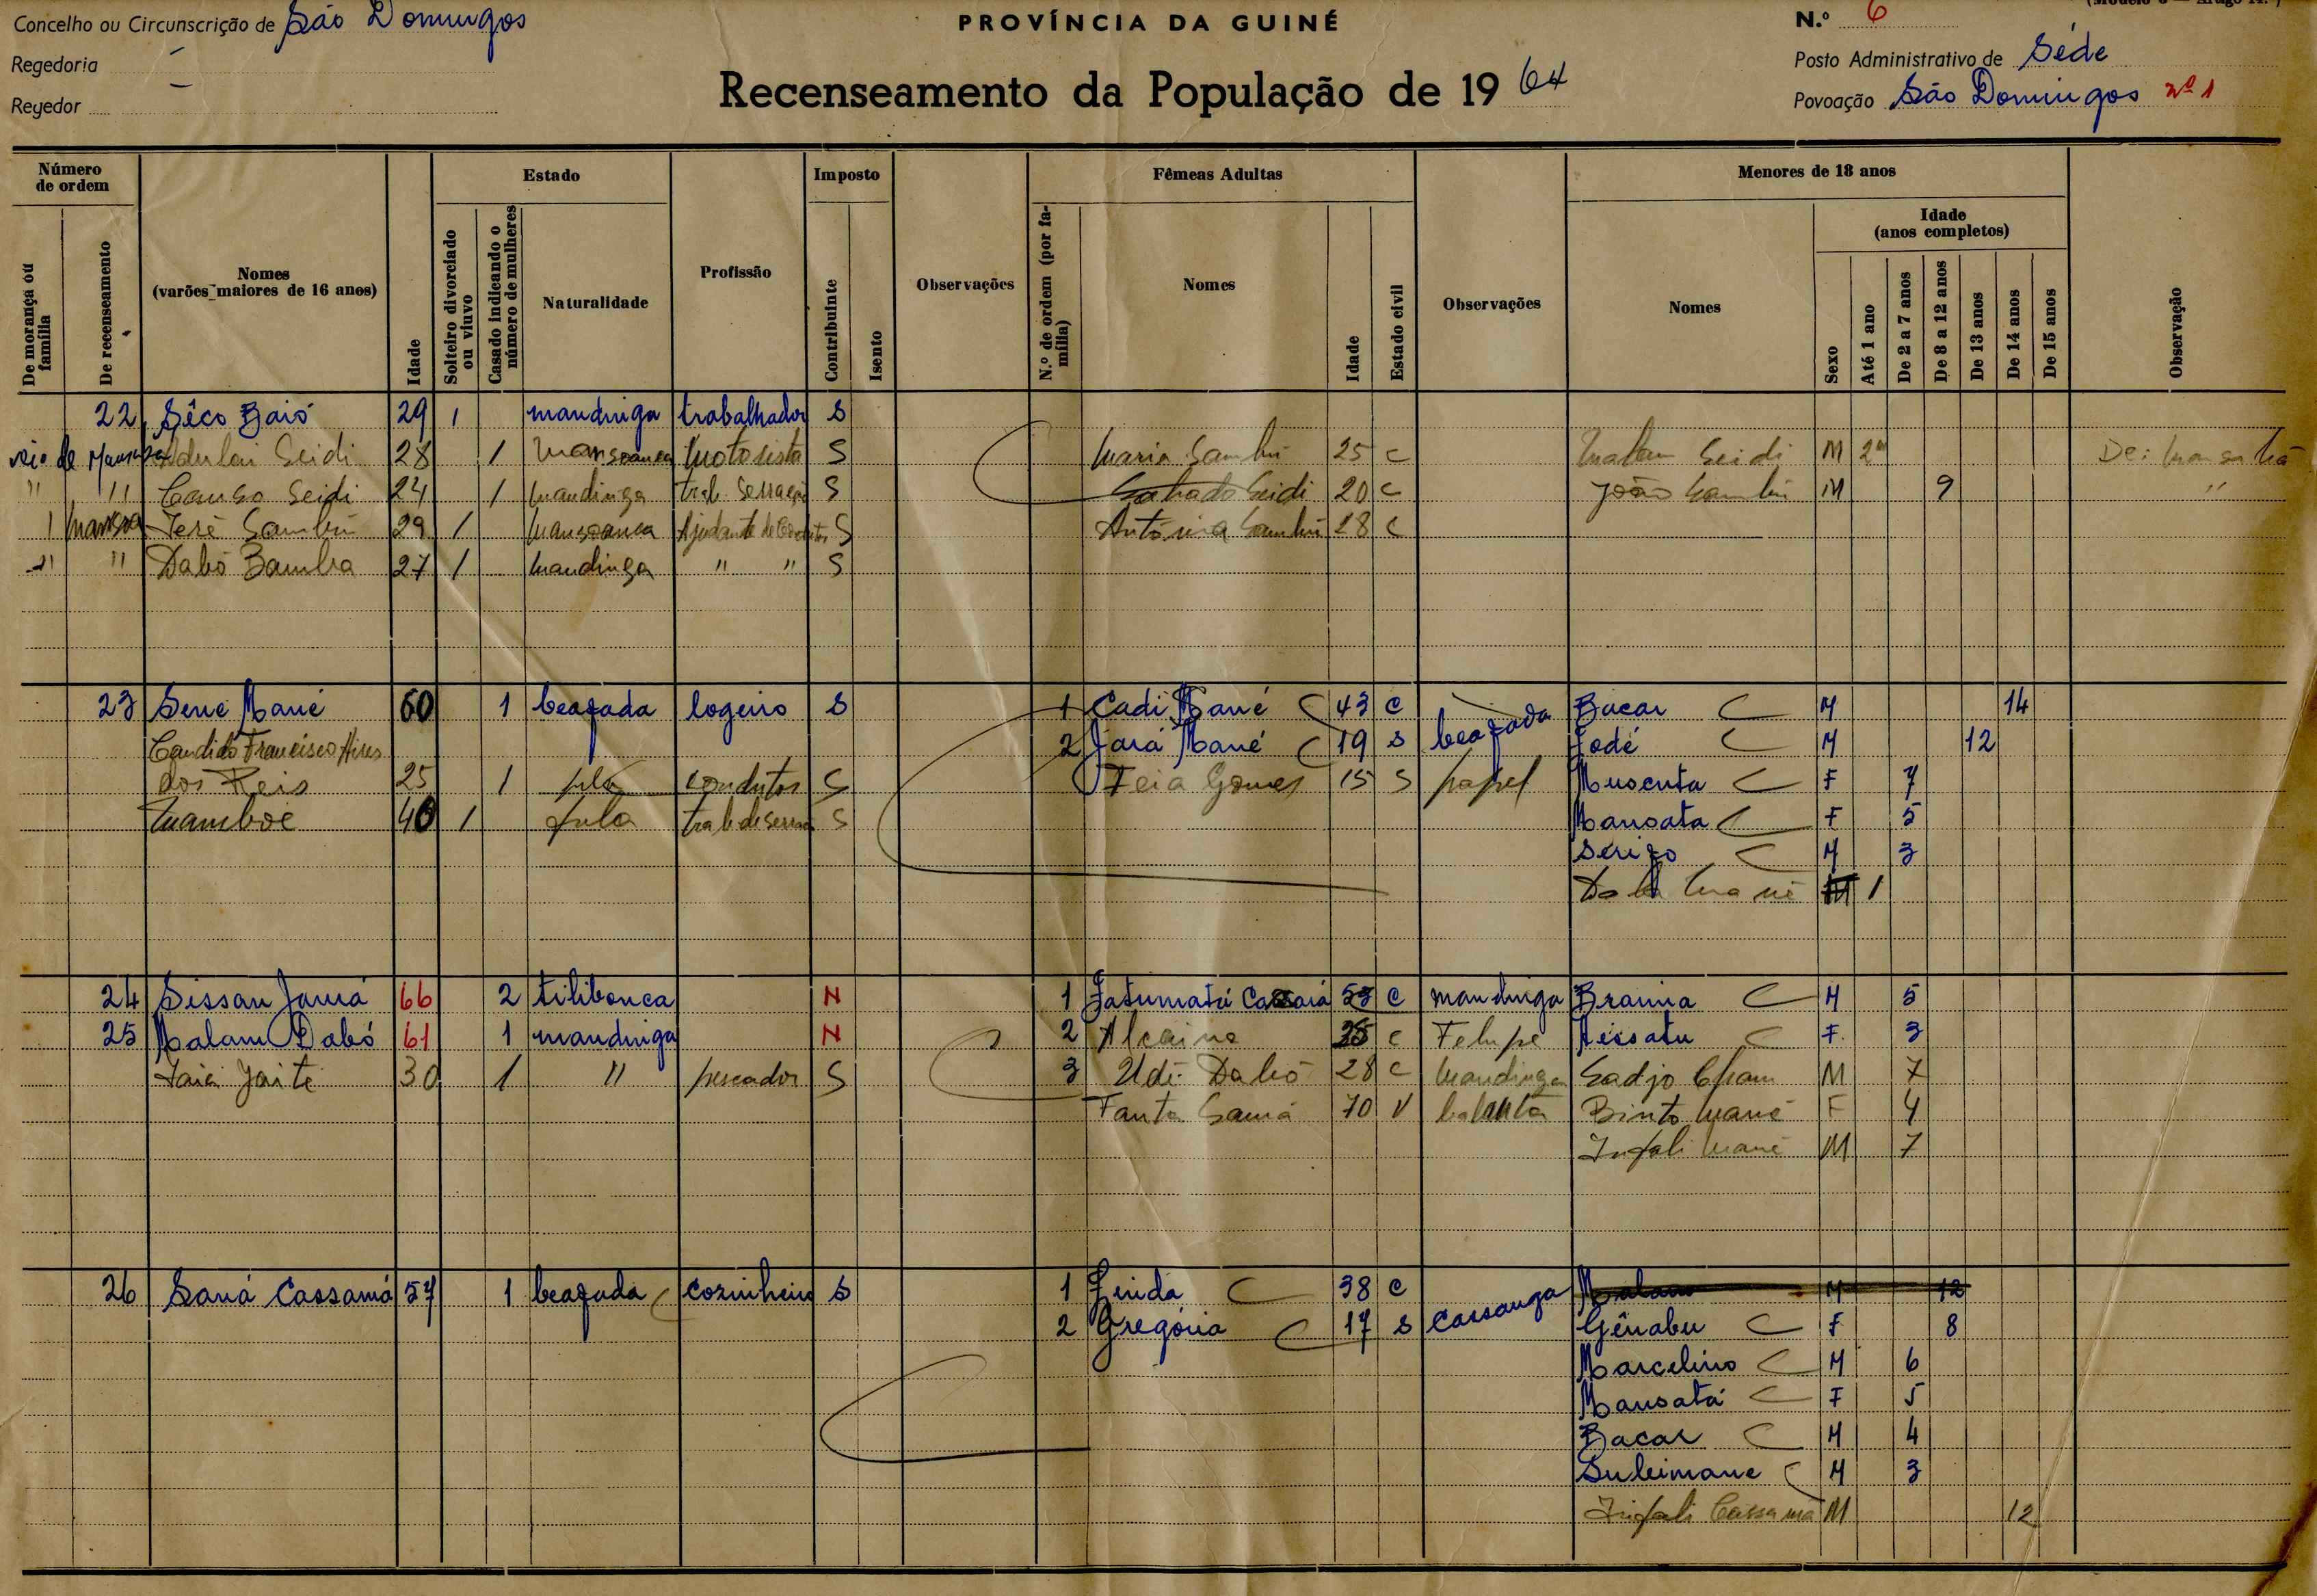 Concelho ou Circunscrição de São Domingos
PROVÍNCIA DA GUINÉ
N.º 6
Regedoria —
Posto Administrativo de Séde
Regedor —
Recenseamento da População de 19 64
Povoação São Domingos nº 1
Número de ordem
De morança ou família
De recenseamento
Nomes (varões maiores de 16 anos)
Idade
Estado
Solteiro divorciado ou viuvo
Casado indicando o número de mulheres
Naturalidade
Profissão
Imposto
Contribuinte
Isento
Observações
Fêmeas Adultas
N.º de ordem (por família)
Nomes
Idade
Estado civil
Observações
Menores de 18 anos
Nomes
Sexo
Idade (anos completos)
Até 1 ano
De 2 a 7 anos
De 8 a 12 anos
De 13 anos
De 14 anos
De 15 anos
Observação
22 Sêco Baió 29 1 mandinga trabalhador S
Adulai Seidi 28 1 Mansoanca Motorista S Maria Sambú 25 C Malam Seidi M De: Mansabá
" " Seidi 24 1 Mandinga trab. Serração S Seidi 20 C João Sambú M 9 "
Mansoa Sambú 29 1 Mansoanca Ajudante de S Antónia Sambú 28 C
" " Dabó Bamba 27 1 Mandinga " " S
23 Sene Mané 60 1 beafada logeiro S 1 Cadi Mané 43 C beafada Bacar M 14
Candido Francisco Aires 2 Jará Mané 19 S Jodé M 12
dos Reis 25 1 condutor S Feia Gomes 15 S papel Musenta F 7
40 1 fula S Mansata F 5
Serifo M 3
Mané M 1
24 Sissau Jamá 66 2 tilibonca N 1 Fatumatá 53 C mandinga Braima M 5
25 Malam Dabó 61 1 mandinga N 2 C Felupe Aissatu F. 3
Jaité 30 1 " pescador S 3 Udé Dabó 28 C Mandinga Sadjo M 7
Fanta Samá 70 V balanta Binto Mané F 4
Infali Mané M 7
26 Saná Cassamá 57 1 beafada cozinheiro S 1 Linda 38 C Cassanga Malam M 12
2 Gregória 17 S Gênabu F 8
Marcelino M 6
Mansatá F 5
Bacar M 4
Suleimane M 3
Infali Cassamá M 12